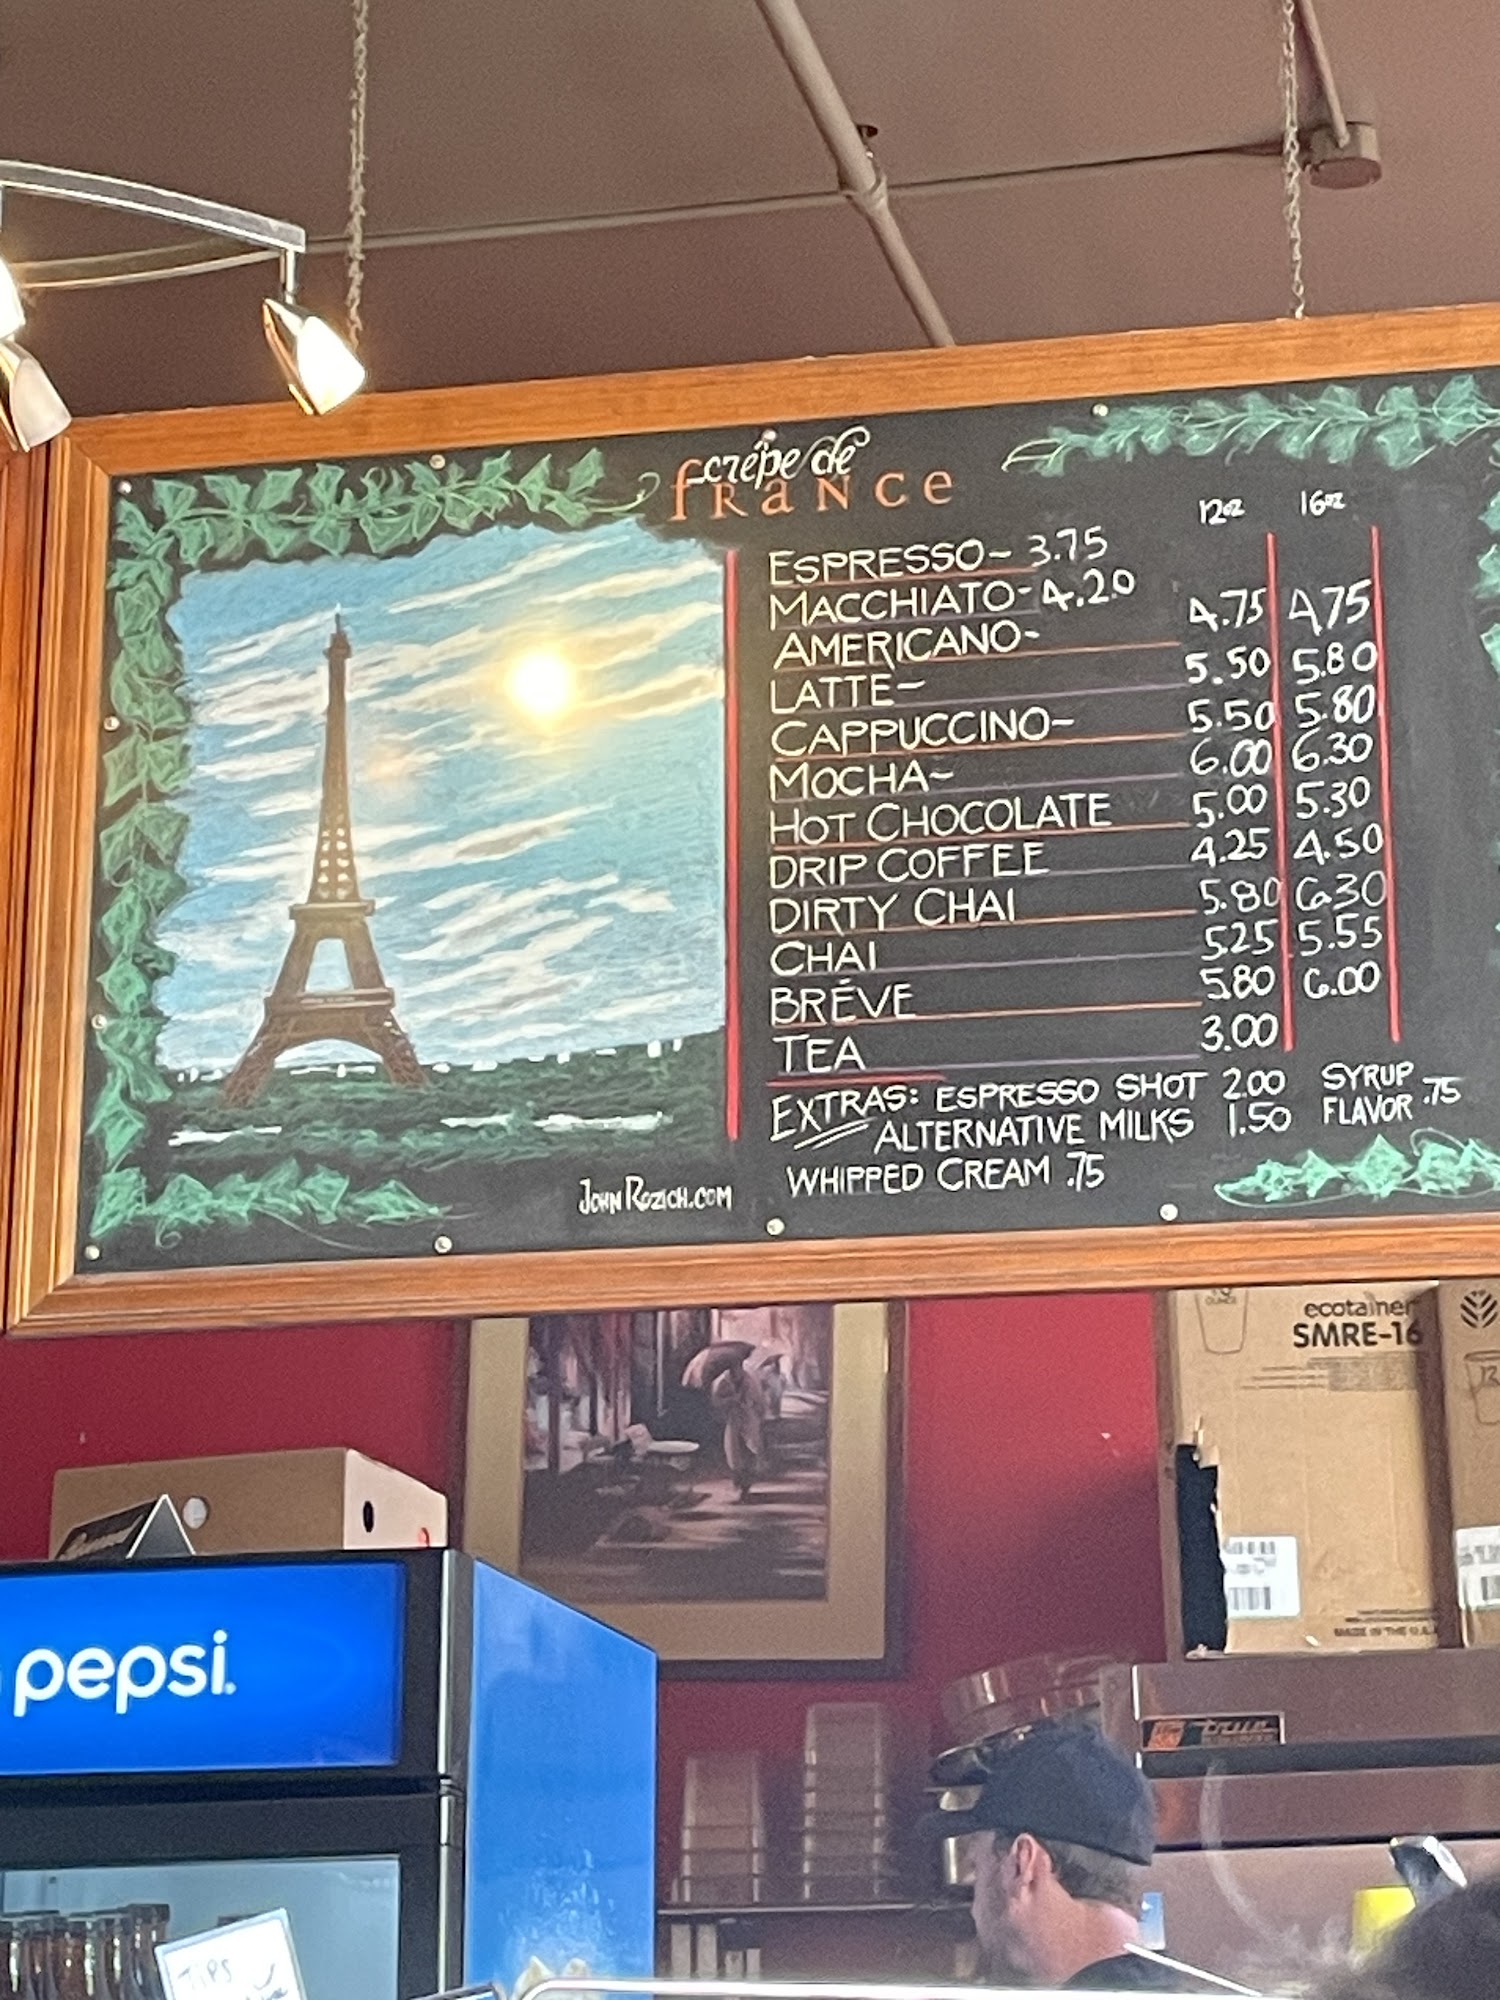 crêpe de
france
12oz 16oz
ESPRESSO~ 3.75
MACCHIATO- 4.20
AMERICANO- 4.75 4.75
LATTE~ 5.50 5.80
CAPPUCCINO~ 5.50 5.80
MOCHA~ 6.00 6.30
HOT CHOCOLATE 5.00 5.30
DRIP COFFEE 4.25 4.50
DIRTY CHAI 5.80 6.30
CHAI 5.25 5.55
BRÉVE 5.80 6.00
TEA 3.00
EXTRAS: ESPRESSO SHOT 2.00 SYRUP
ALTERNATIVE MILKS 1.50 FLAVOR .75
WHIPPED CREAM .75
JOHNROZICH.COM
ecotainer
SMRE-16
MADE IN THE U.S.A.
pepsi
true
TIPS